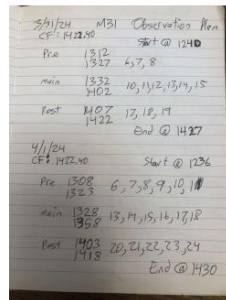 3/31/24 M31 Observation Plan
CF: 1422.40 Start @ 1240
Pre 1312
1327 6,7,8
main 1332
1402 10,11,12,13,14,15
Post 1407 17,18,19
1422
End @ 1427
4/1/24
CF: 1422.40 Start @ 1236
Pre 1308
1323 6,7,8,9,10,11
main 1328
1358 13,14,15,16,17,18
Post 1403 20,21,22,23,24
1418
End @ 1430